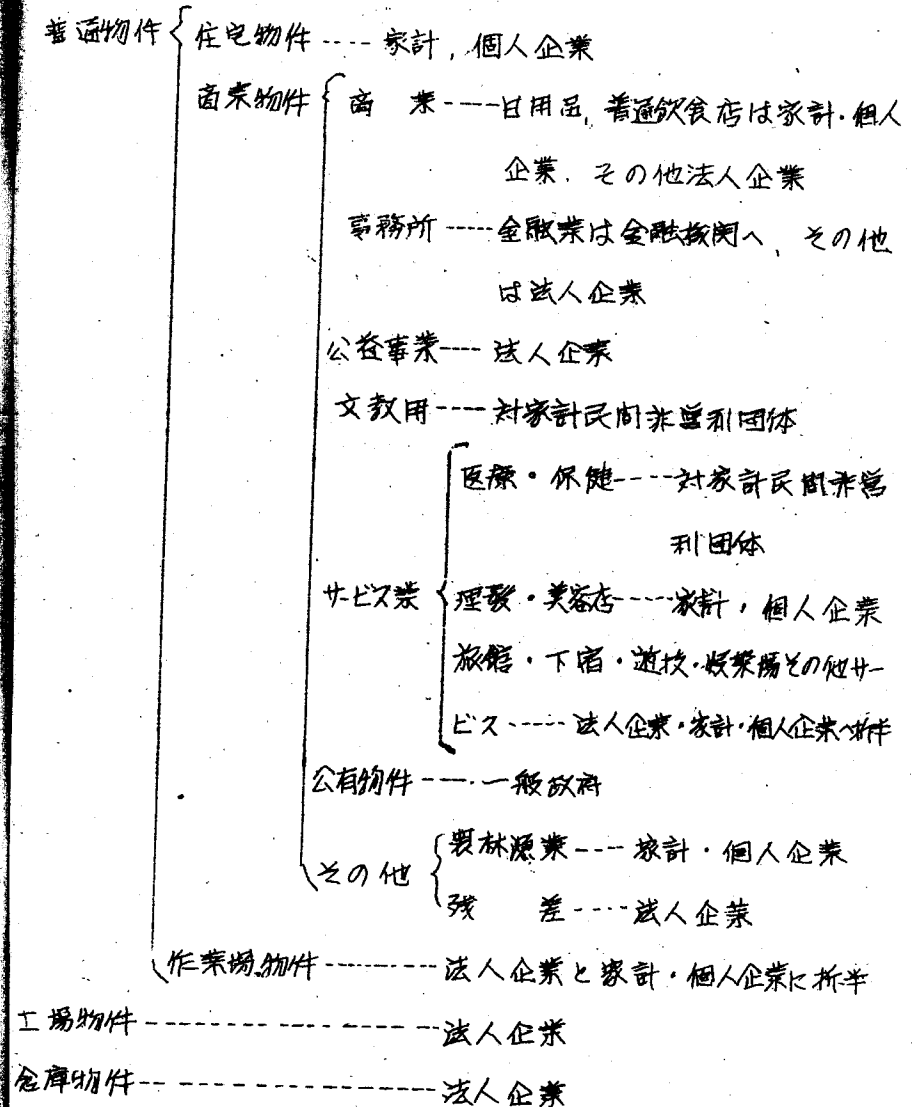 普通物件 { 住宅物件 ---- 家計, 個人企業
商業物件 { 商 業 ---- 日用品, 普通飲食店は家計・個人
企業, その他法人企業
事務所 ----- 金融業は金融機関へ, その他
は法人企業
公益事業 ---- 法人企業
文教用 ---- 対家計民間非営利団体
医療・保健 ---- 対家計民間非営
利団体
サービス業 { 理髪・美容店 ----- 家計, 個人企業
旅館・下宿・遊技・娯楽場その他サー
ビス ----- 法人企業・家計・個人企業へ折半
公有物件 ---- 一般政府
その他 { 農林漁業 ---- 家計・個人企業
残 差 ---- 法人企業
作業場物件 -------- 法人企業と家計・個人企業に折半
工場物件 ---------------- 法人企業
倉庫物件 ---------------- 法人企業